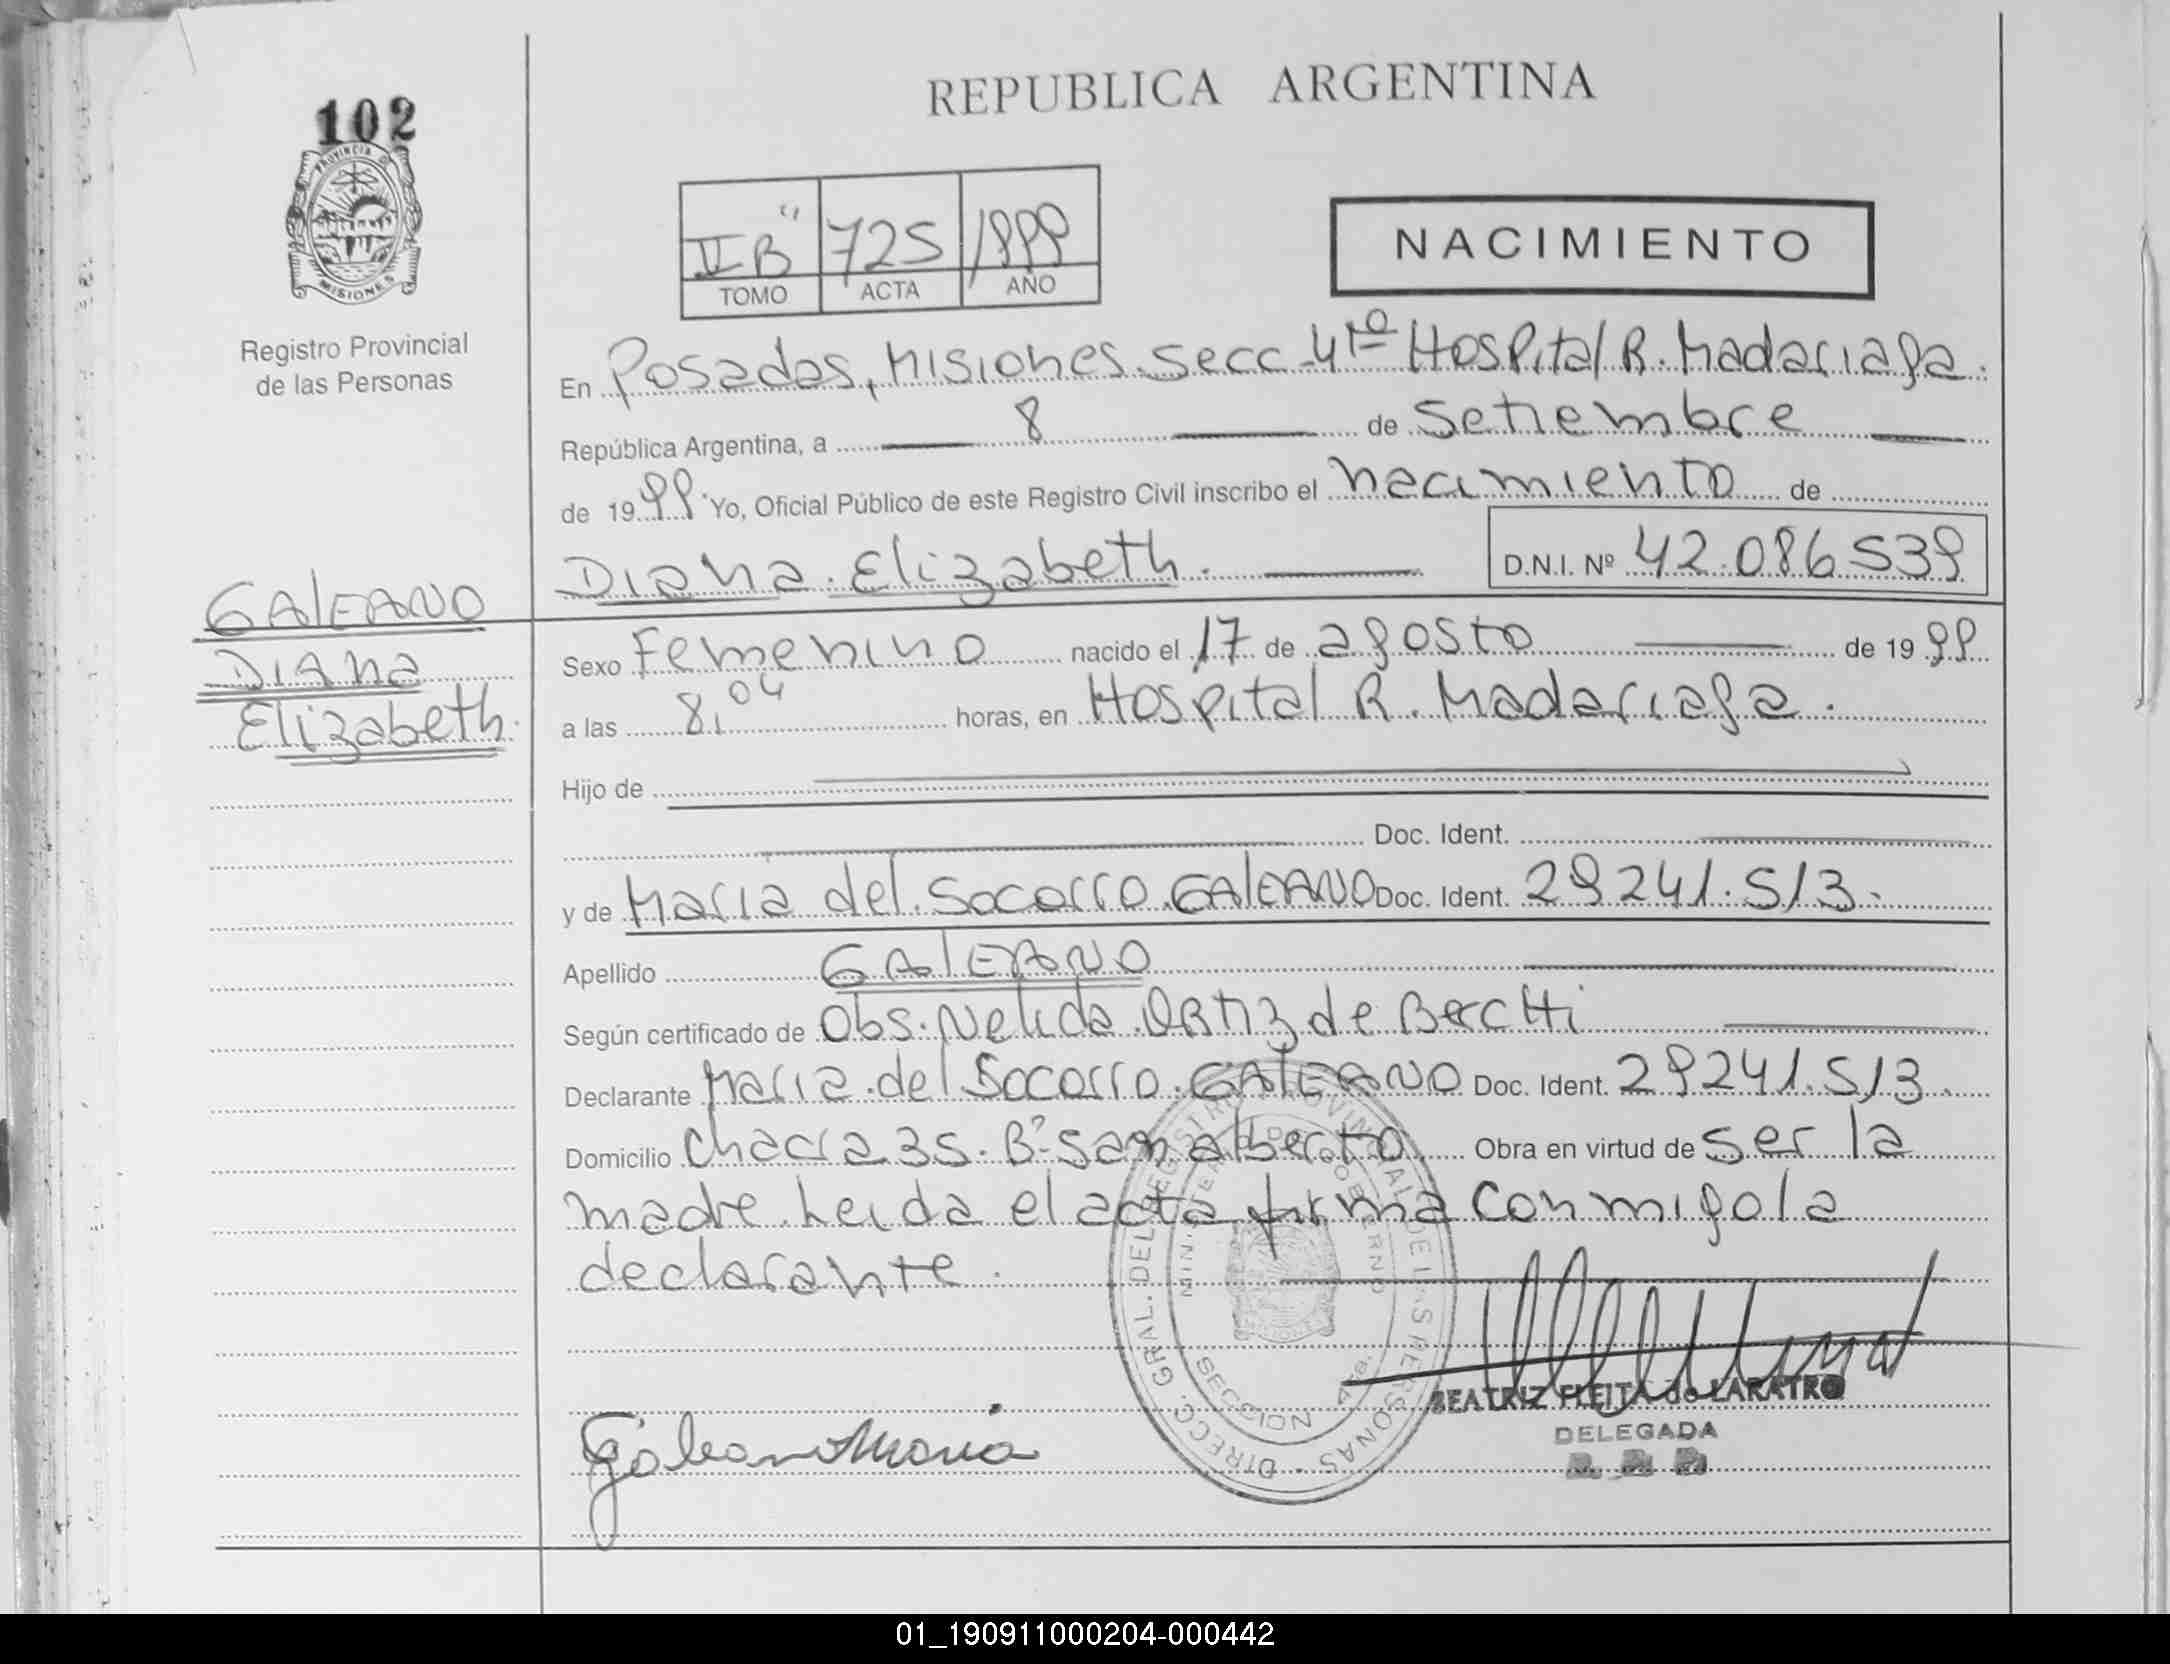 REPUBLICA ARGENTINA
102
PROVINCIA DE
MISIONES
Registro Provincial
de las Personas
II "B" 725 1999
TOMO ACTA AÑO
NACIMIENTO
En Posadas, Misiones. Secc. 4ta Hospital R. Madariaga.
República Argentina, a 8 de Setiembre
de 1999 Yo, Oficial Público de este Registro Civil inscribo el nacimiento de
Diana Elizabeth. D.N.I. Nº 42.086539
GALEANO
Diana
Elizabeth.
Sexo Femenino nacido el 17 de agosto de 1999
a las 8,04 horas, en Hospital R. Madariaga.
Hijo de
Doc. Ident.
y de Maria del Socorro GALEANO Doc. Ident. 29241.513.
Apellido GALEANO
Según certificado de Obs. Nelida Ortiz de Berchi
Declarante Maria del Socorro GALEANO Doc. Ident. 29241.513.
Domicilio Chacra 35. Bº San alberto Obra en virtud de ser la
madre. Leida el acta firma conmigo la
declarante.
DIRECC. GRAL. DEL REGISTRO PROVINCIAL DE LAS PERSONAS
SECCION 4ta.
Galeano Maria
BEATRIZ FLEITA de LARATRO
DELEGADA
01_190911000204-000442